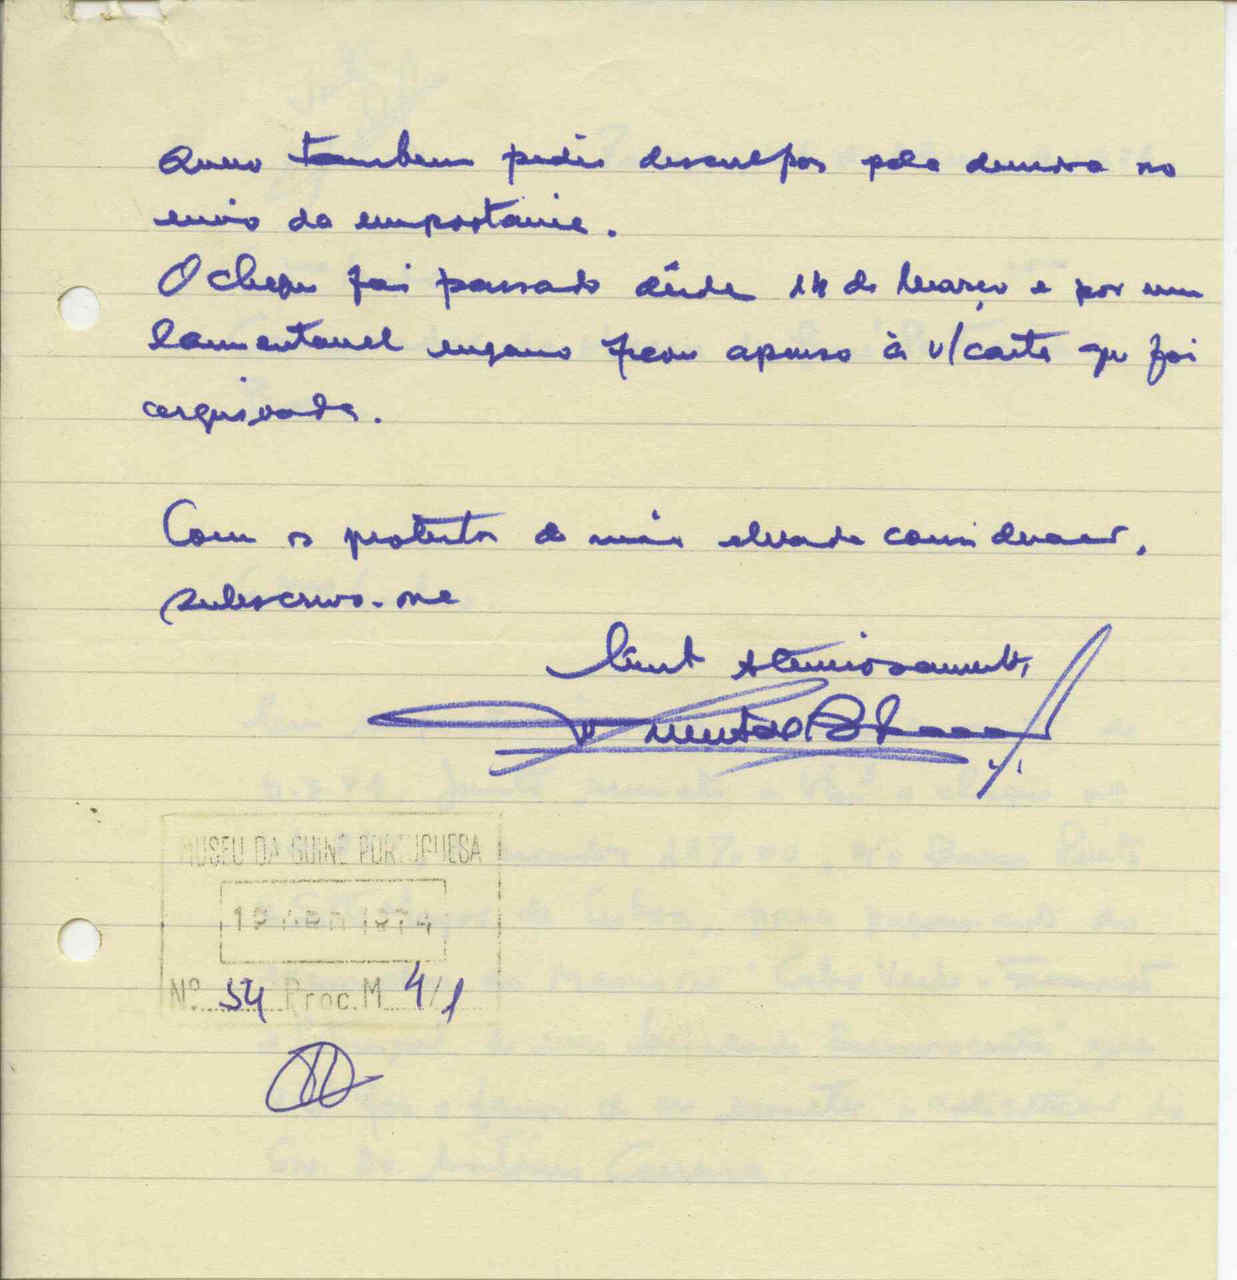 Quero tambem pedir desculpas pela demora no
envio da importancia.
O cheque foi passado désde 14 de Março e por um
lamentavel engano ficou apenso à v/carta que foi
arquivada.
Com os protestos de mais elevada consideração,
subscrevo-me
Atenciosamente,
MUSEU DA GUINÉ PORTUGUESA
19 ABR 1974
Nº 54 Proc. M 4/1